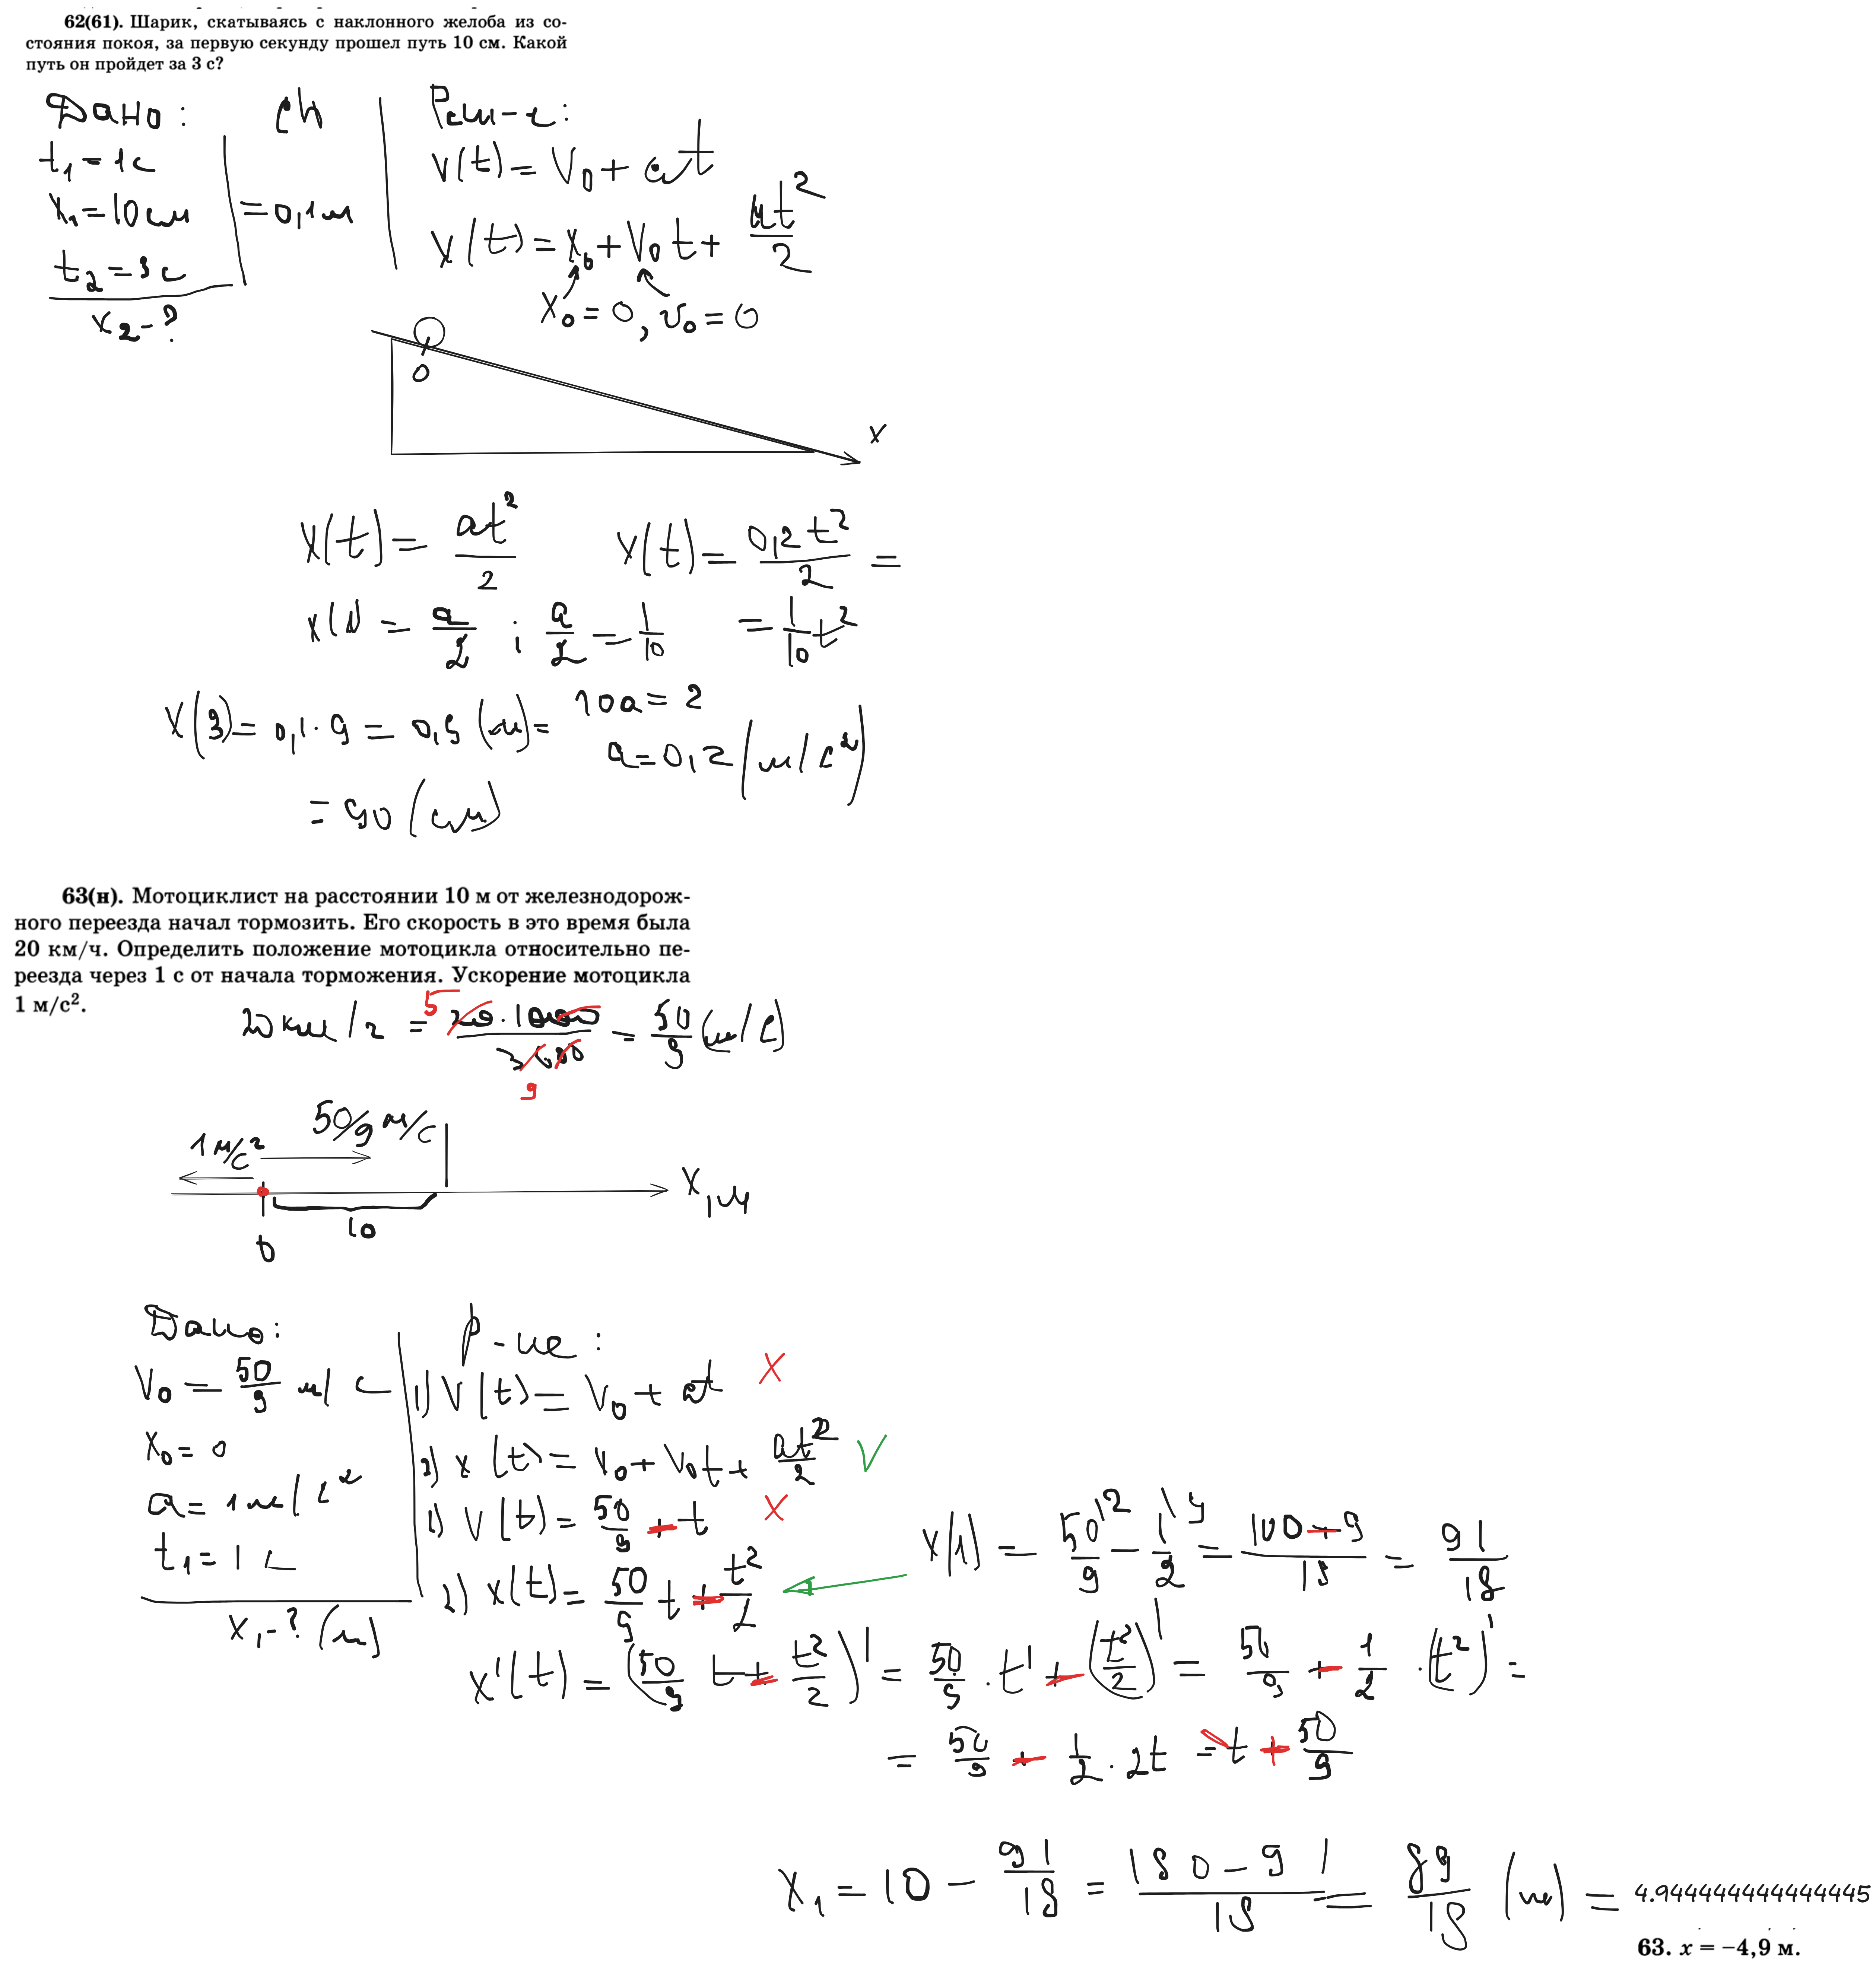 62(61). Шарик, скатываясь с наклонного желоба из со-
стояния покоя, за первую секунду прошел путь 10 см. Какой
путь он пройдет за 3 с?
Дано: СИ Реш-е:
t₁ = 1с
x₁ = 10 см = 0,1 м
t₂ = 3 с
x₂ - ?
V(t) = V₀ + at
x(t) = x₀ + V₀t + at²/2
x₀ = 0, v₀ = 0
0
x
x(t) = at²/2
x(1) = a/2 ; a/2 = 1/10
10a = 2
a = 0,2 (м/с²)
x(t) = 0,2t²/2 =
= 1/10 t²
x(3) = 0,1 · 9 = 0,9 (м) =
= 90 (см)
63(н). Мотоциклист на расстоянии 10 м от железнодорож-
ного переезда начал тормозить. Его скорость в это время была
20 км/ч. Определить положение мотоцикла относительно пе-
реезда через 1 с от начала торможения. Ускорение мотоцикла
1 м/с².
20 км/ч = 20 · 1000/3600 = 50/9 (м/с)
5
9
1 м/с² 50/9 м/с
x, м
10
0
Дано: Р-ие:
V₀ = 50/9 м/с
x₀ = 0
a = 1 м/с²
t₁ = 1 с
x₁ - ? (м)
1) V(t) = V₀ + at X
2) x(t) = x₀ + V₀t + at²/2 V
1) V(t) = 50/9 - t X
2) x(t) = 50/9 t - t²/2
x(1) = 50/9 - 1/2 = 100 - 9/18 = 91/18
x'(t) = (50/9 t - t²/2)' = 50/9 · t' - (t²/2)' = 50/9 - 1/2 · (t²)' =
= 50/9 - 1/2 · 2t = -t + 50/9
x₁ = 10 - 91/18 = 180 - 91/18 = 89/18 (м) = 4.944444444444445
63. x = −4,9 м.